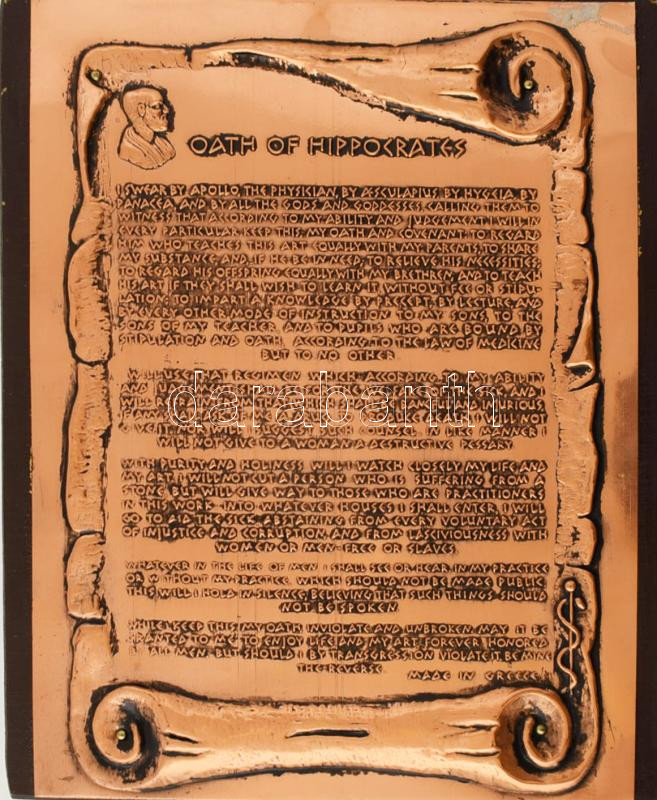 OATH OF HIPPOCRATES
I SWEAR BY APOLLO, THE PHYSICIAN, BY ÆSCULAPIUS, BY HYGEIA, BY
PANACEA, AND BY ALL THE GODS AND GODDESSES, CALLING THEM TO
WITNESS THAT ACCORDING TO MY ABILITY AND JUDGEMENT, I WILL IN
EVERY PARTICULAR KEEP THIS, MY OATH AND COVENANT: TO REGARD
HIM WHO TEACHES THIS ART EQUALLY WITH MY PARENTS, TO SHARE
MY SUBSTANCE, AND, IF HE BE IN NEED, TO RELIEVE HIS NECESSITIES
TO REGARD HIS OFFSPRING EQUALLY WITH MY BRETHREN; AND TO TEACH
HIS ART IF THEY SHALL WISH TO LEARN IT, WITHOUT FEE OR STIPU
LATION; TO IMPART A KNOWLEDGE BY PRECEPT, BY LECTURE, AND
BY EVERY OTHER MODE OF INSTRUCTION TO MY SONS, TO THE
SONS OF MY TEACHER, AND TO PUPILS WHO ARE BOUND BY
STIPULATION AND OATH, ACCORDING TO THE LAW OF MEDICINE
BUT TO NO OTHER
I WILL USE THAT REGIMEN WHICH, ACCORDING TO MY ABILITY
AND
WILL INJURIOUS,
I WILL NOT
GIVE SUGGEST SUCH COUNSEL. IN LIKE MANNER I
WILL NOT GIVE TO A WOMAN A DESTRUCTIVE PESSARY.
WITH PURITY AND HOLINESS WILL I WATCH CLOSELY MY LIFE AND
MY ART. I WILL NOT CUT A PERSON WHO IS SUFFERING FROM A
STONE, BUT WILL GIVE WAY TO THOSE WHO ARE PRACTITIONERS
IN THIS WORK. INTO WHATEVER HOUSES I SHALL ENTER, I WILL
GO TO AID THE SICK, ABSTAINING FROM EVERY VOLUNTARY ACT
OF INJUSTICE AND CORRUPTION, AND FROM LASCIVIOUSNESS WITH
WOMEN OR MEN-FREE OR SLAVES.
WHATEVER IN THE LIFE OF MEN I SHALL SEE OR HEAR, IN MY PRACTICE
OR WITHOUT MY PRACTICE, WHICH SHOULD NOT BE MADE PUBLIC,
THIS WILL I HOLD IN SILENCE, BELIEVING THAT SUCH THINGS SHOULD
NOT BE SPOKEN.
WHILE I KEEP THIS, MY OATH, INVIOLATE AND UNBROKEN, MAY IT BE
GRANTED TO ME TO ENJOY LIFE AND MY ART, FOREVER HONORED
BY ALL MEN, BUT SHOULD I BY TRANSGRESSION VIOLATE IT, BE MINE
THE REVERSE.
MADE IN GREECE
darabanth